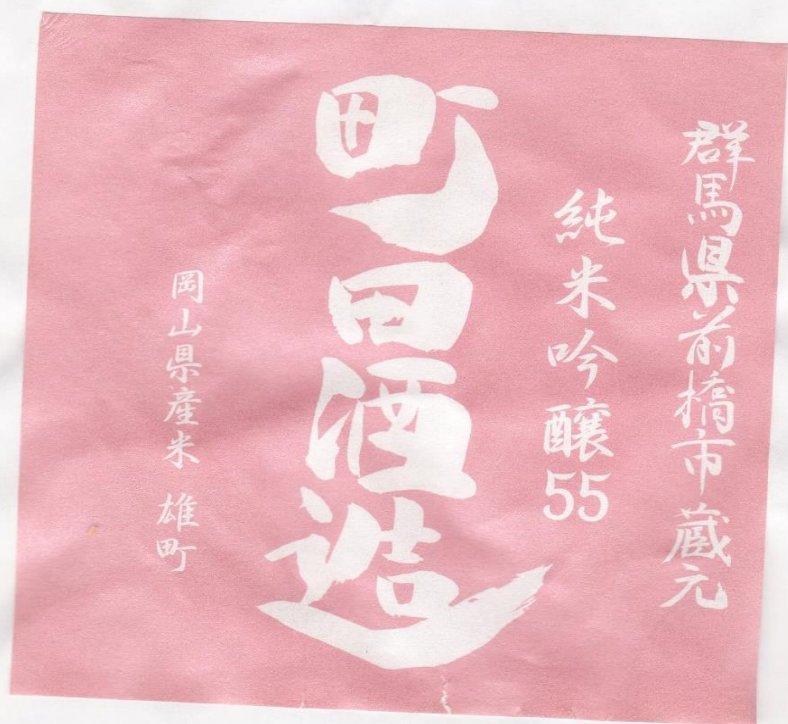 群馬県前橋市 蔵元
純米吟醸55
町田酒造
岡山県産米 雄町